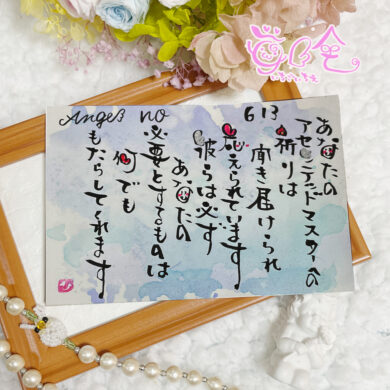 Angel no 613
あなたの
アセンデッドマスターへの
祈りは
聞き届けられ
応えられています
彼らは必ず
あなたの
必要とするものは
何でも
もたらしてくれます